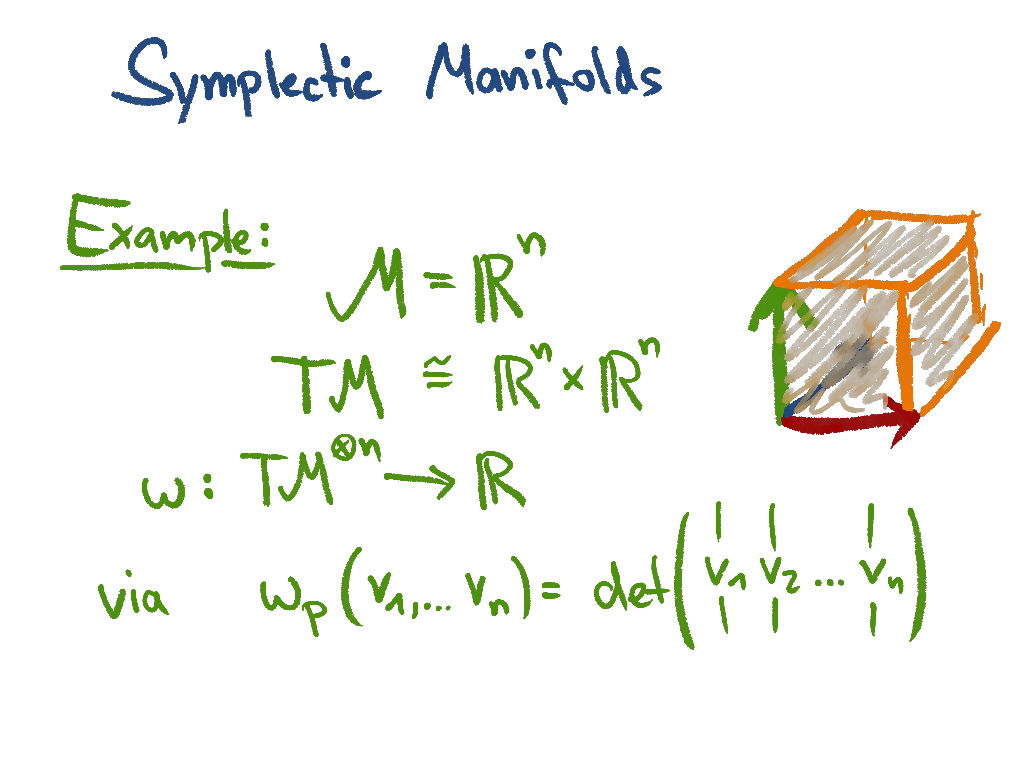 Symplectic Manifolds
Example:
M = ℝⁿ
TM ≅ ℝⁿ × ℝⁿ
ω : TM^⊗n → ℝ
via ω_p (v₁,... vₙ) = det ( v₁ v₂ ... vₙ )